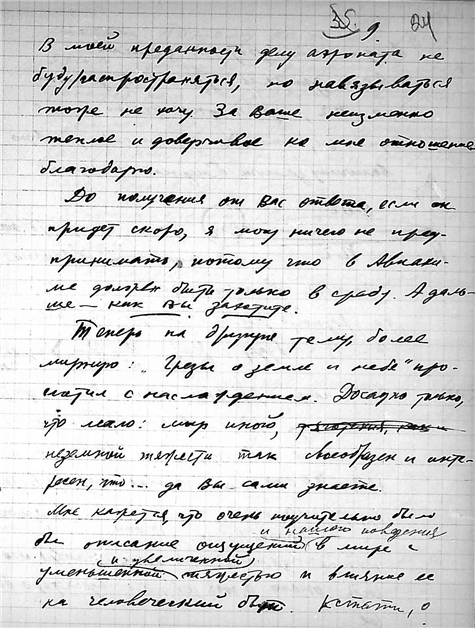 35. 9. 24
В моей преданности делу аэроната не
буду распространяться, но навязываться
тоже не хочу. За Ваше неизменно
теплое и доверчивое ко мне отношение
благодарю.
До получения от Вас ответа, если он
придет скоро, я могу ничего не пред-
принимать, потому что в Авиахи-
ме должен быть только в среду. А даль-
ше — как Вы захотите.
Теперь на другую тему, более
мирную: "Грезы о земле и небе" про-
глотил с наслаждением. Досадно только,
что мало: мир иной,
неземной тяжести так своеобразен и инте-
ресен, что... да Вы сами знаете.
Мне кажется, что очень поучительно было
и нашего поведения
бы описание ощущений в мире с
и увеличенной
уменьшенной тяжестью и влияние ее
на человеческий быт. Кстати, о